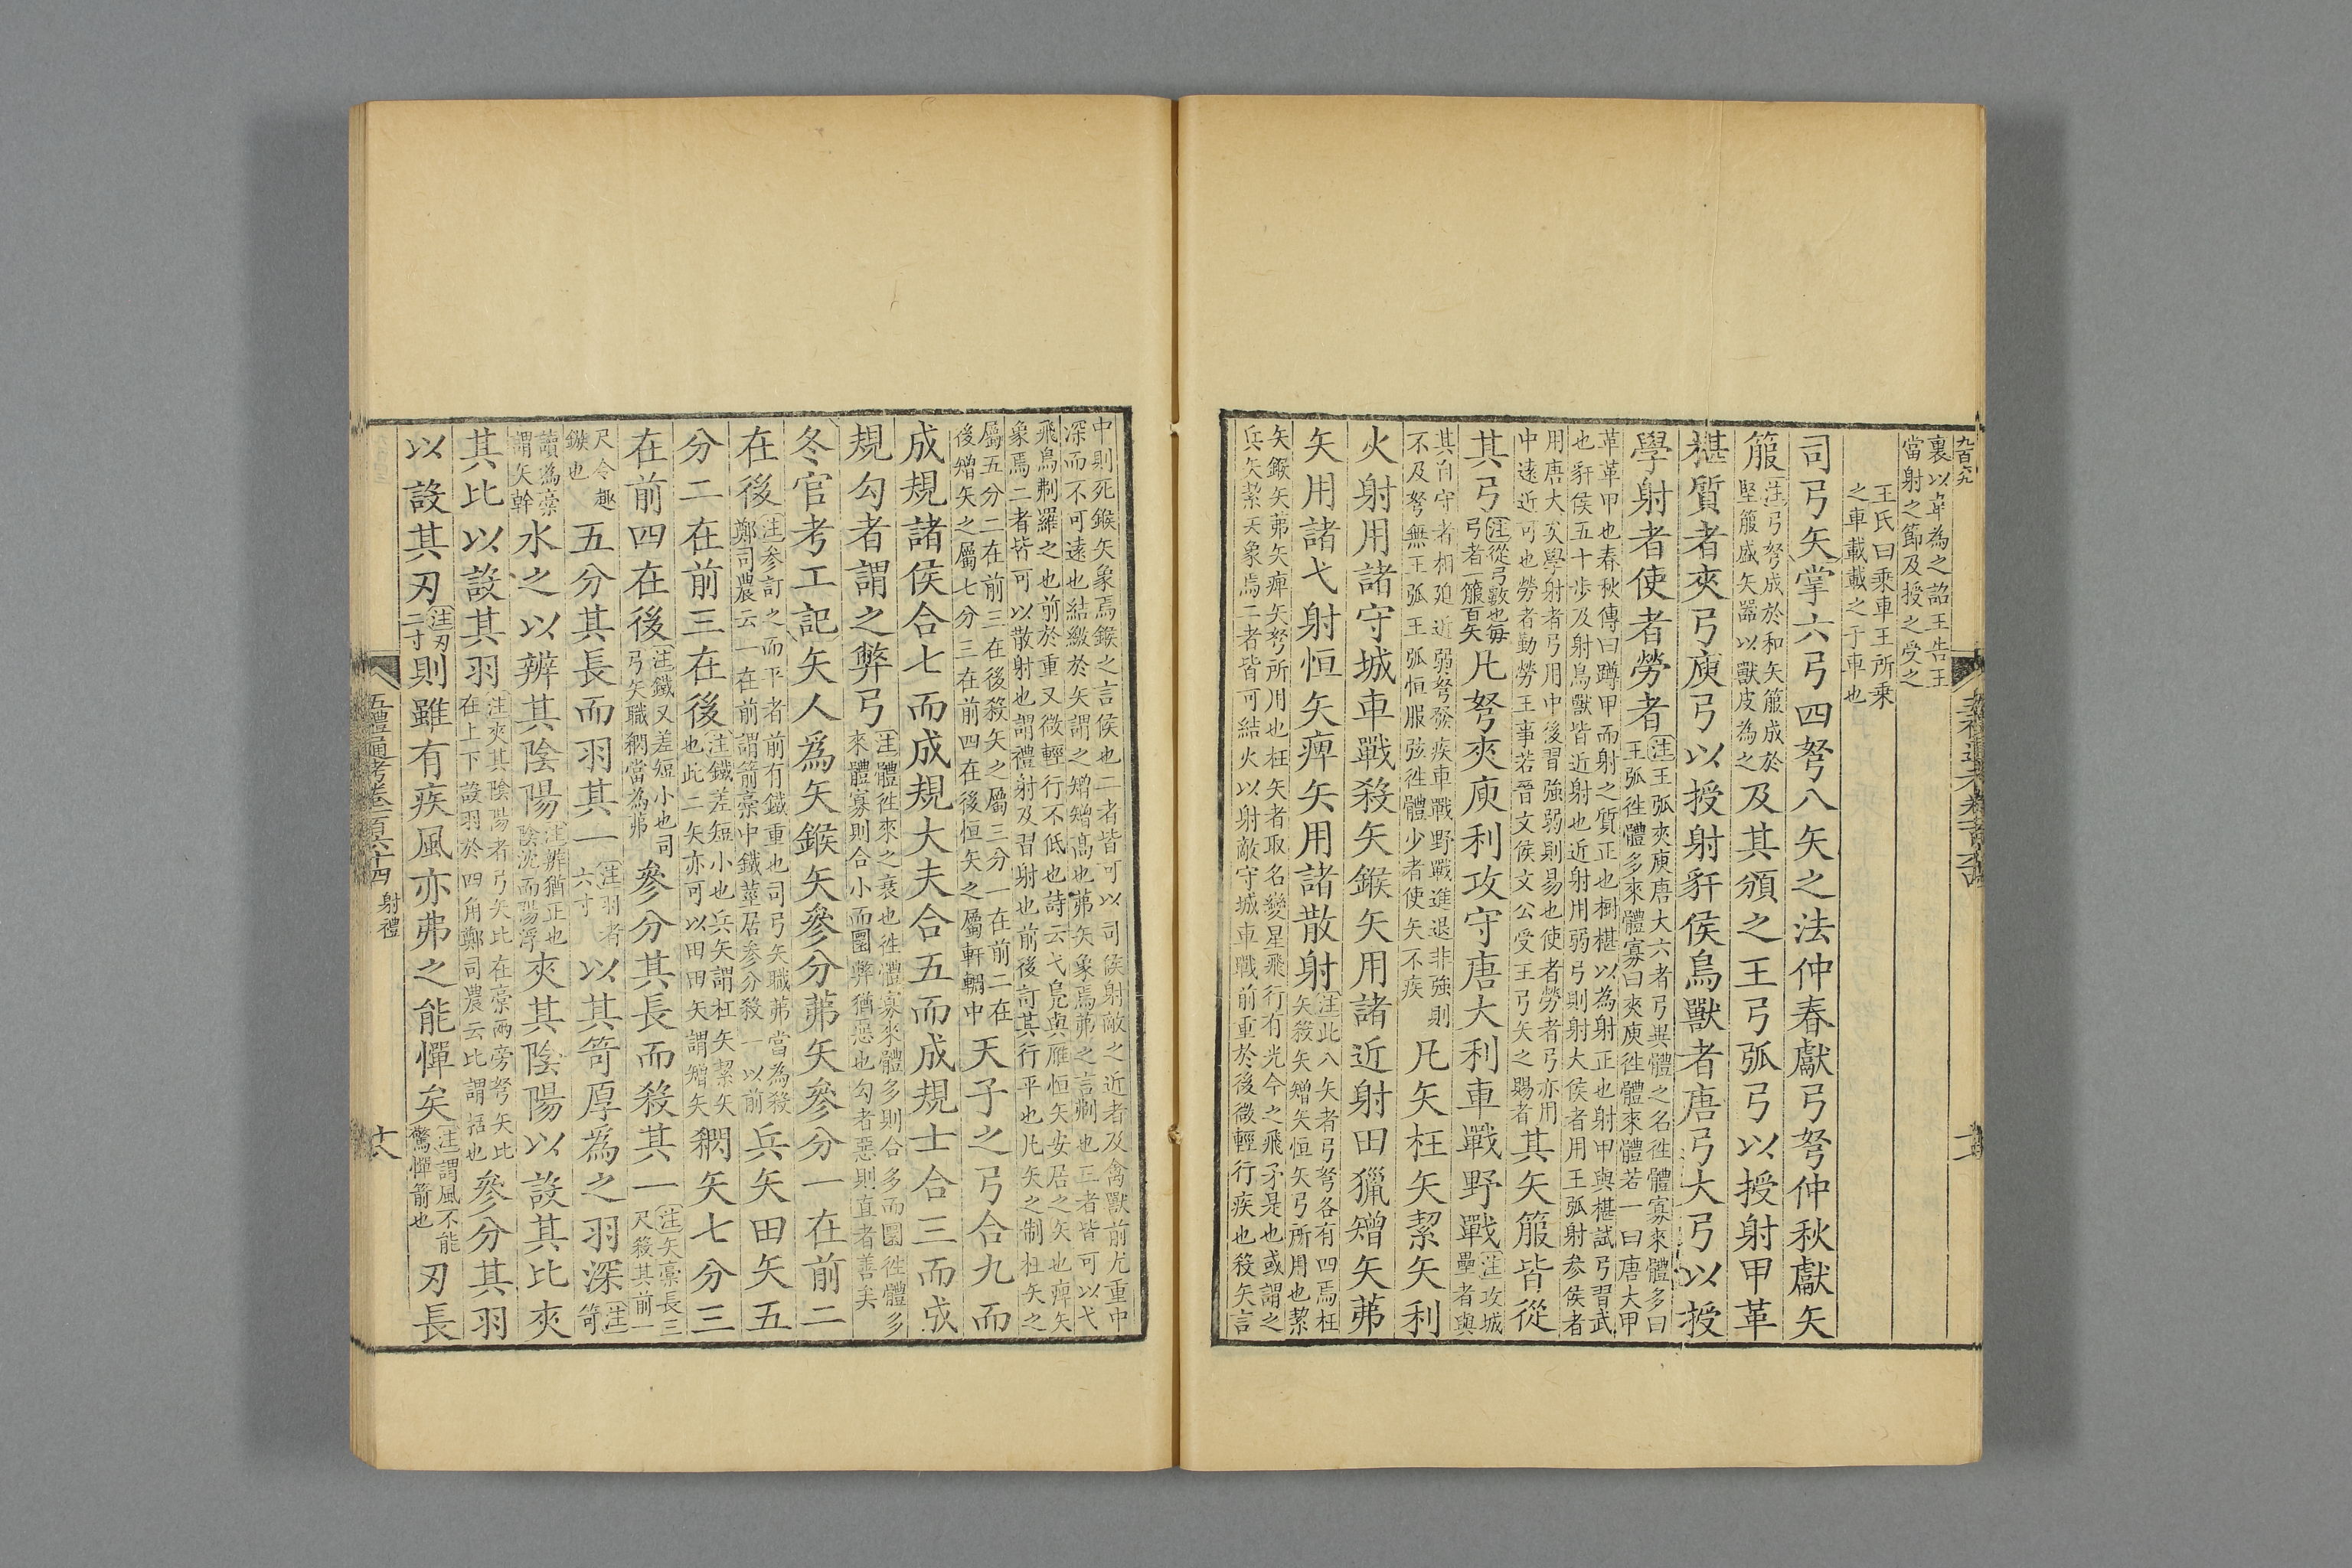 九百六九
五禮通考卷一百六十四
裏以韋為之詔王告王
當射之節及授之受之
王氏曰乘車王所乘
之車載載之于車也
司弓矢掌六弓四弩八矢之法仲春獻弓弩仲秋獻矢
箙注弓弩成於和矢箙成於
堅箙盛矢器以獸皮為之及其頒之王弓弧弓以授射甲革
椹質者夾弓庾弓以授射豻侯鳥獸者唐弓大弓以授
學射者使者勞者注王弧夾庾唐大六者弓異體之名徃體寡來體多曰
王弧徃體多來體寡曰夾庾徃體來體若一曰唐大甲
革革甲也春秋傳曰蹲甲而射之質正也樹椹以為射正也射甲與椹試弓習武
也豻侯五十步及射鳥獸皆近射也近射用弱弓則射大侯者用王弧射参侯者
用唐大矣學射者弓用中後習強弱則易也使者勞者弓亦用
中遠近可也勞者勤勞王事若晉文侯文公受王弓矢之賜者其矢箙皆從
其弓注從弓數也每
弓者一箙百矢凡弩夾庾利攻守唐大利車戰野戰注攻城
壘者與
其自守者相迫近弱弩發疾車戰野戰進退非強則
不及弩無王弧王弧恒服弦徃體少者使矢不疾凡矢枉矢絜矢利
火射用諸守城車戰殺矢鍭矢用諸近射田獵矰矢茀
矢用諸弋射恒矢痺矢用諸散射注此八矢者弓弩各有四焉枉
矢殺矢矰矢恒矢弓所用也絜
矢鍭矢茀矢痺矢弩所用也枉矢者取名變星飛行有光今之飛矛是也或謂之
兵矢絜矢象焉二者皆可結火以射敵守城車戰前重於後微輕行疾也殺矢言
中則死鍭矢象焉鍭之言侯也二者皆可以司侯射敵之近者及禽獸前尤重中
深而不可遠也結繳於矢謂之矰矰髙也茀矢象焉茀之言刜也二者皆可以弋
飛鳥刜羅之也前於重又微輕行不低也詩云弋鳧與雁恒矢安居之矢也痺矢
象焉二者皆可以散射也謂禮射及習射也前後訂其行平也凡矢之制枉矢之
屬五分二在前三在後殺矢之屬三分一在前二在
後矰矢之屬七分三在前四在後恒矢之屬軒輖中天子之弓合九而
成規諸侯合七而成規大夫合五而成規士合三而成
規勾者謂之弊弓注體徃來之衰也徃體寡來體多則合多而圜徃體多
來體寡則合小而圜弊猶惡也勾者惡則直者善矣
冬官考工記矢人爲矢鍭矢參分茀矢參分一在前二
在後注参訂之而平者前有鐵重也司弓矢職茀當為殺
鄭司農云一在前謂箭槀中鐵莖居参分殺一以前兵矢田矢五
分二在前三在後注鐵差短小也兵矢謂枉矢絜矢
也此二矢亦可以田田矢謂矰矢殺矢七分三
在前四在後注鐵又差短小也司
弓矢職殺當為茀參分其長而殺其一注矢槀長三
尺殺其前一
尺令趣
鏃也五分其長而羽其一注羽者
六寸以其笴厚爲之羽深注笴
讀為槀
謂矢幹水之以辨其陰陽注辨猶正也
陰沈而陽浮夾其陰陽以設其比夾
其比以設其羽注夾其陰陽者弓矢比在槀兩旁弩矢比
在上下設羽於四角鄭司農云比謂括也參分其羽
以設其刃注刃
二寸則雖有疾風亦弗之能憚矣注謂風不能
驚憚箭也刃長
五禮通考卷一百六十四 射禮
六